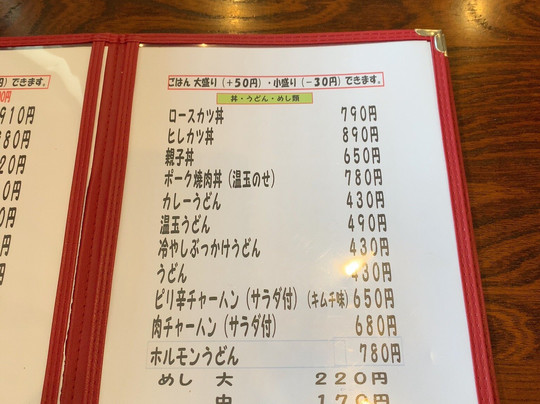 円）できます。
00円
910円
80円
20円
0円
0円
円
円
ごはん 大盛り（＋50円）・小盛り（－30円）できます。
丼・うどん・めし類
ロースカツ丼 790円
ヒレカツ丼 890円
親子丼 650円
ポーク焼肉丼（温玉のせ） 780円
カレーうどん 430円
温玉うどん 490円
冷やしぶっかけうどん 430円
うどん 430円
ピリ辛チャーハン（サラダ付）（キムチ味）650円
肉チャーハン（サラダ付） 680円
ホルモンうどん 780円
めし 大 220円
中 170円